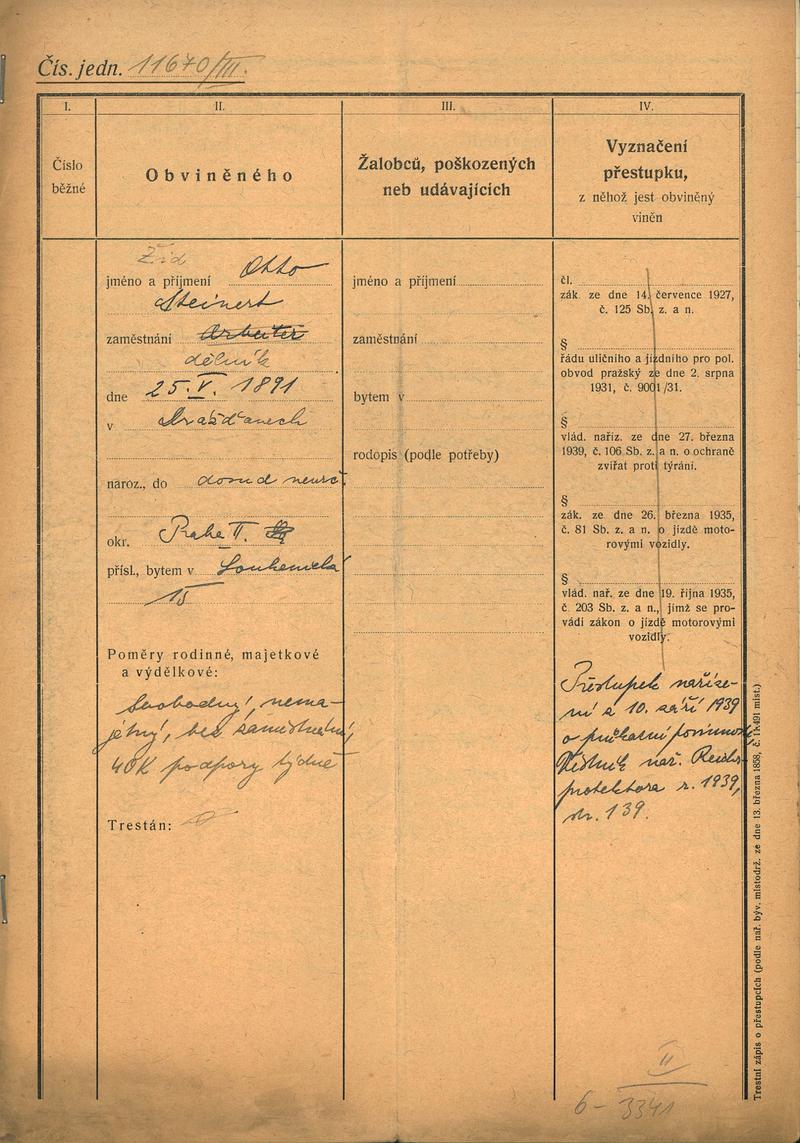 Čís. jedn. 11670/III.
I.
Číslo
běžné
II.
Obviněného
III.
Žalobců, poškozených
neb udávajících
IV.
Vyznačení
přestupku,
z něhož jest obviněný
viněn
Žid
jméno a příjmení Otto
Steinert
zaměstnání Arbeiter
dělník
dne 25. V. 1891
v Drážďanech
naroz., do domud neurč.
okr. Praha II.
přísl., bytem v Soukenická
15
Poměry rodinné, majetkové
a výdělkové:
svobodný, nema-
jetný, bez zaměstnání,
40K podpory týdně
Trestán:
jméno a příjmení
zaměstnání
bytem v
rodopis (podle potřeby)
čl.
zák. ze dne 14. července 1927,
č. 125 Sb. z. a n.
§
řádu uličního a jízdního pro pol.
obvod pražský ze dne 2. srpna
1931, č. 9001/31.
§
vlád. naříz. ze dne 27. března
1939, č. 106 Sb. z. a n. o ochraně
zvířat proti týrání.
§
zák. ze dne 26. března 1935,
č. 81 Sb. z. a n. o jízdě moto-
rovými vozidly.
§
vlád. nař. ze dne 19. října 1935,
č. 203 Sb. z. a n., jímž se pro-
vádí zákon o jízdě motorovými
vozidly.
Přestupek naříze-
ní z 10. září 1939
o
Věstník nař. Reichs
protektora r. 1939,
str. 139.
II
6 - 3341
Trestní zápis o přestupcích (podle nař. býv. místodrž. ze dne 13. března 1858, č. 11.491 míst.)